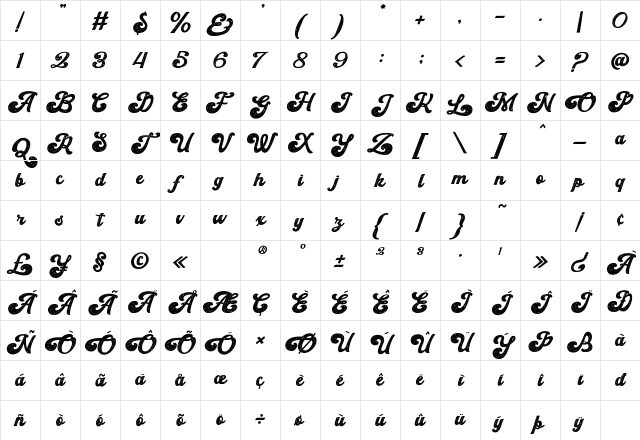 ! " # $ % & ' ( ) * + , - . / 0
1 2 3 4 5 6 7 8 9 : ; < = > ? @
A B C D E F G H I J K L M N O P
Q R S T U V W X Y Z [ \ ] ^ _ a
b c d e f g h i j k l m n o p q
r s t u v w x y z { | } ~ ¡ ¢
£ ¥ § © « ® ° ± ² ³ · ¹ » ¿ À
Á Â Ã Ä Å Æ Ç È É Ê Ë Ì Í Î Ï Ð
Ñ Ò Ó Ô Õ Ö × Ø Ù Ú Û Ü Ý Þ ß à
á â ã ä å æ ç è é ê ë ì í î ï ð
ñ ò ó ô õ ö ÷ ø ù ú û ü ý þ ÿ